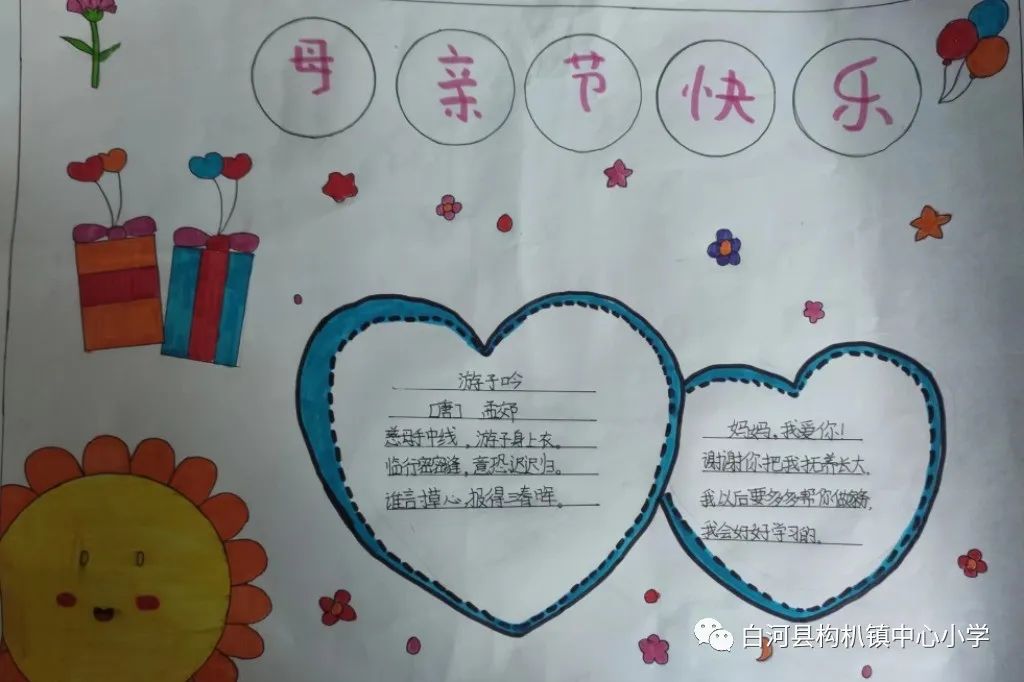 母亲节快乐
游子吟
[唐] 孟郊
慈母手中线，游子身上衣。
临行密密缝，意恐迟迟归。
谁言寸草心，报得三春晖。
妈妈，我爱你！
谢谢你把我抚养长大，
我以后要多多帮你做家务，
我会好好学习的。
白河县构朳镇中心小学